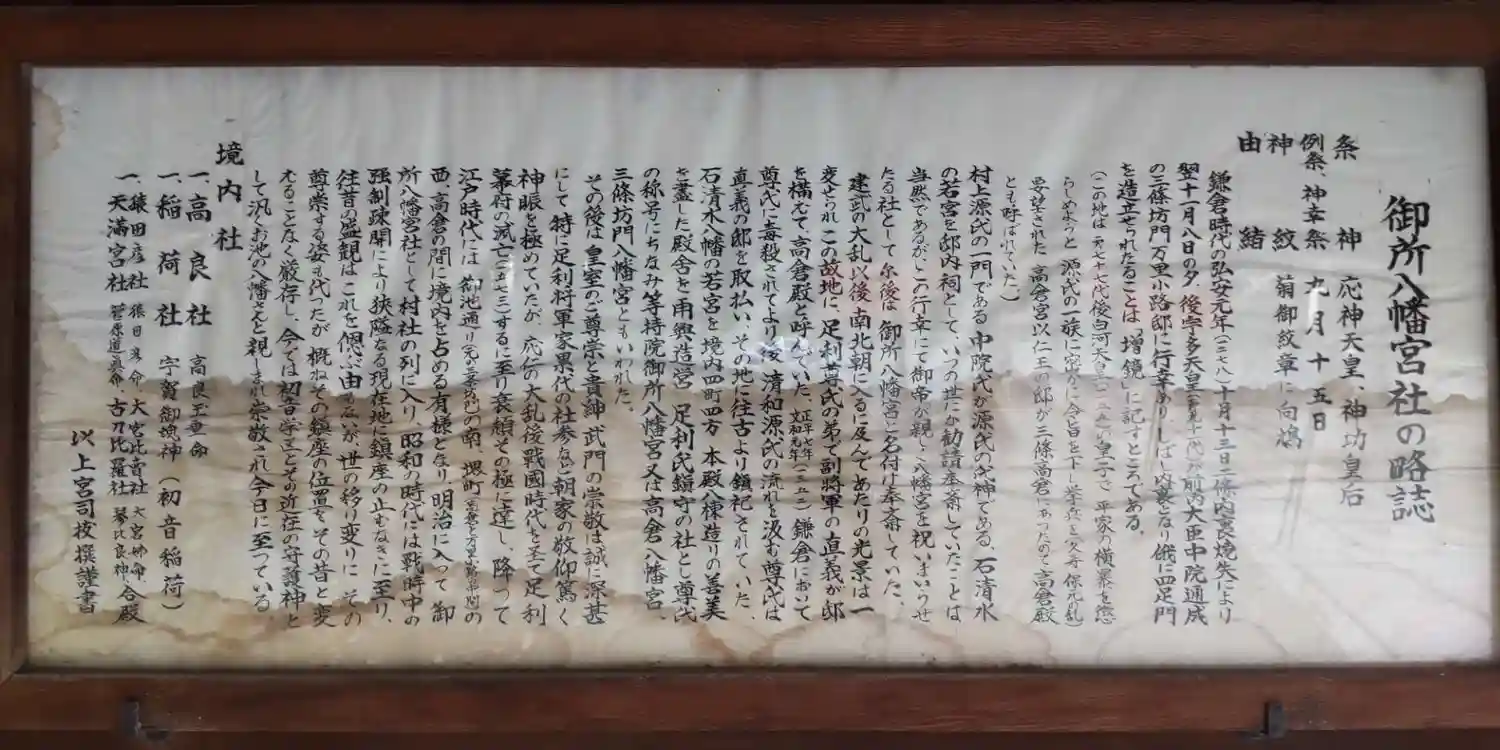 御所八幡宮社の略誌
祭神 応神天皇、神功皇后
例祭、神幸祭 九月十五日
神紋 菊御紋章に向鳩
由緒
鎌倉時代の弘安元年(一二七八)十月十三日二條内裏焼失により
翌十一月八日の夕、後宇多天皇が前内大臣中院通成
の三條坊門万里小路邸に行幸あり、しばし内裏となり俄に四足門
を造立せられたることは「増鏡」に記すところである。
(この地は 七十七代後白河天皇の皇子で 平家の横暴を懲
らしめようと 源氏の一族に密かに令旨を下し
要望された 高倉宮以仁王の邸が三條高倉にあったので高倉殿
とも呼ばれていた)
村上源氏の一門である 中院氏が源氏の氏神である、石清水
の若宮を邸内祠として、いつの世にか勧請奉斎していたことは
当然であるが、この行幸にて御帝が親しく八幡宮を祝いまいらせ
たる社として 尓後は 御所八幡宮と名付け奉斎していた、
建武の大乱以後 南北朝に入るに及んであたりの光景は一
変せられ この故地に、足利尊氏の弟で副将軍の直義が邸
を構えて、高倉殿と呼んでいた、正平七年文和元年(一三五二)鎌倉において
尊氏に毒殺されてより後、清和源氏の流れを汲む尊氏は
直義の邸を取払い、その地に往古より鎮祀されていた、
石清水八幡の若宮を境内四町四方 本殿八棟造りの善美
を盡した殿舎を再興造営 足利氏鎮守の社とし尊氏
の称号にちなみ等持院御所八幡宮又は高倉八幡宮、
三條坊門八幡宮ともいわれた、
その後は 皇室のご尊崇と貴紳 武門の崇敬は誠に深甚
にして 特に足利将軍家累代の社参など朝家の敬仰篤く
神賑を極めていたが、応仁の大乱後戦國時代を至て足利
幕府の滅亡(一五七三)するに至り衰頽その極に達し、降って
江戸時代には 御池通りの南、堺町の
西 高倉の間に境内を占める有様となり 明治に入って 御
所八幡宮社として 村社の列に入り、昭和の時代には戦時中の
強制疎開により狭隘なる現在地に鎮座の止むなきに至り、
往昔の盛観は これを偲ぶ由もないが 世の移り変りに その
尊崇する姿も代ったが 概ねその鎮座の位置を その昔と変
えることなく厳存し、今では 初音学区とその近在の守護神と
して汎くお池の八幡さんと親しまれ崇敬され今日に至っている、
境内社
一、高良社 高良玉垂命
一、稲荷社 宇賀御魂神(初音稲荷)
一、猿田彦社 猿田彦命、大宮比売社 大宮姉命、合殿
一、天満宮社 菅原道真命、古刀比羅社 琴比良神、合殿
以上宮司 撰謹書